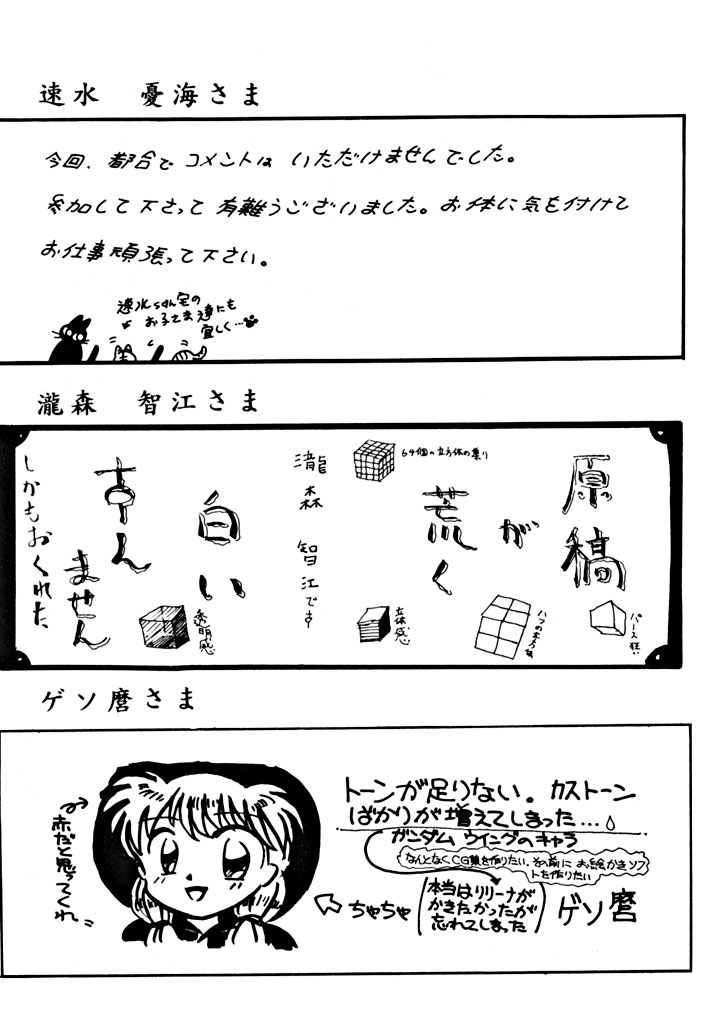 速水 憂海さま
今回、都合で コメントは いただけませんでした。
参加して下さって 有難うございました。お体に気を付けて
お仕事頑張って下さい。
速水ちゃん宅の
お子さま達にも
宜しく…
瀧森 智江さま
原稿
が
荒く
64個の立方体の集り
瀧森 智江です
白い
すん
ません
しかもおくれた
パース狂い
立体感
透明感
ゲソ麿さま
トーンが足りない。カストーン
ばかりが増えてしまった…。
ガンダム ウイングのキャラ
なんとなくCG集を作りたい。その前に お絵かきソフ
トを作りたい
本当はリリーナが
かきたかったが
忘れてしまった
ちゅちゅ
ゲソ麿
赤だと思ってくれ